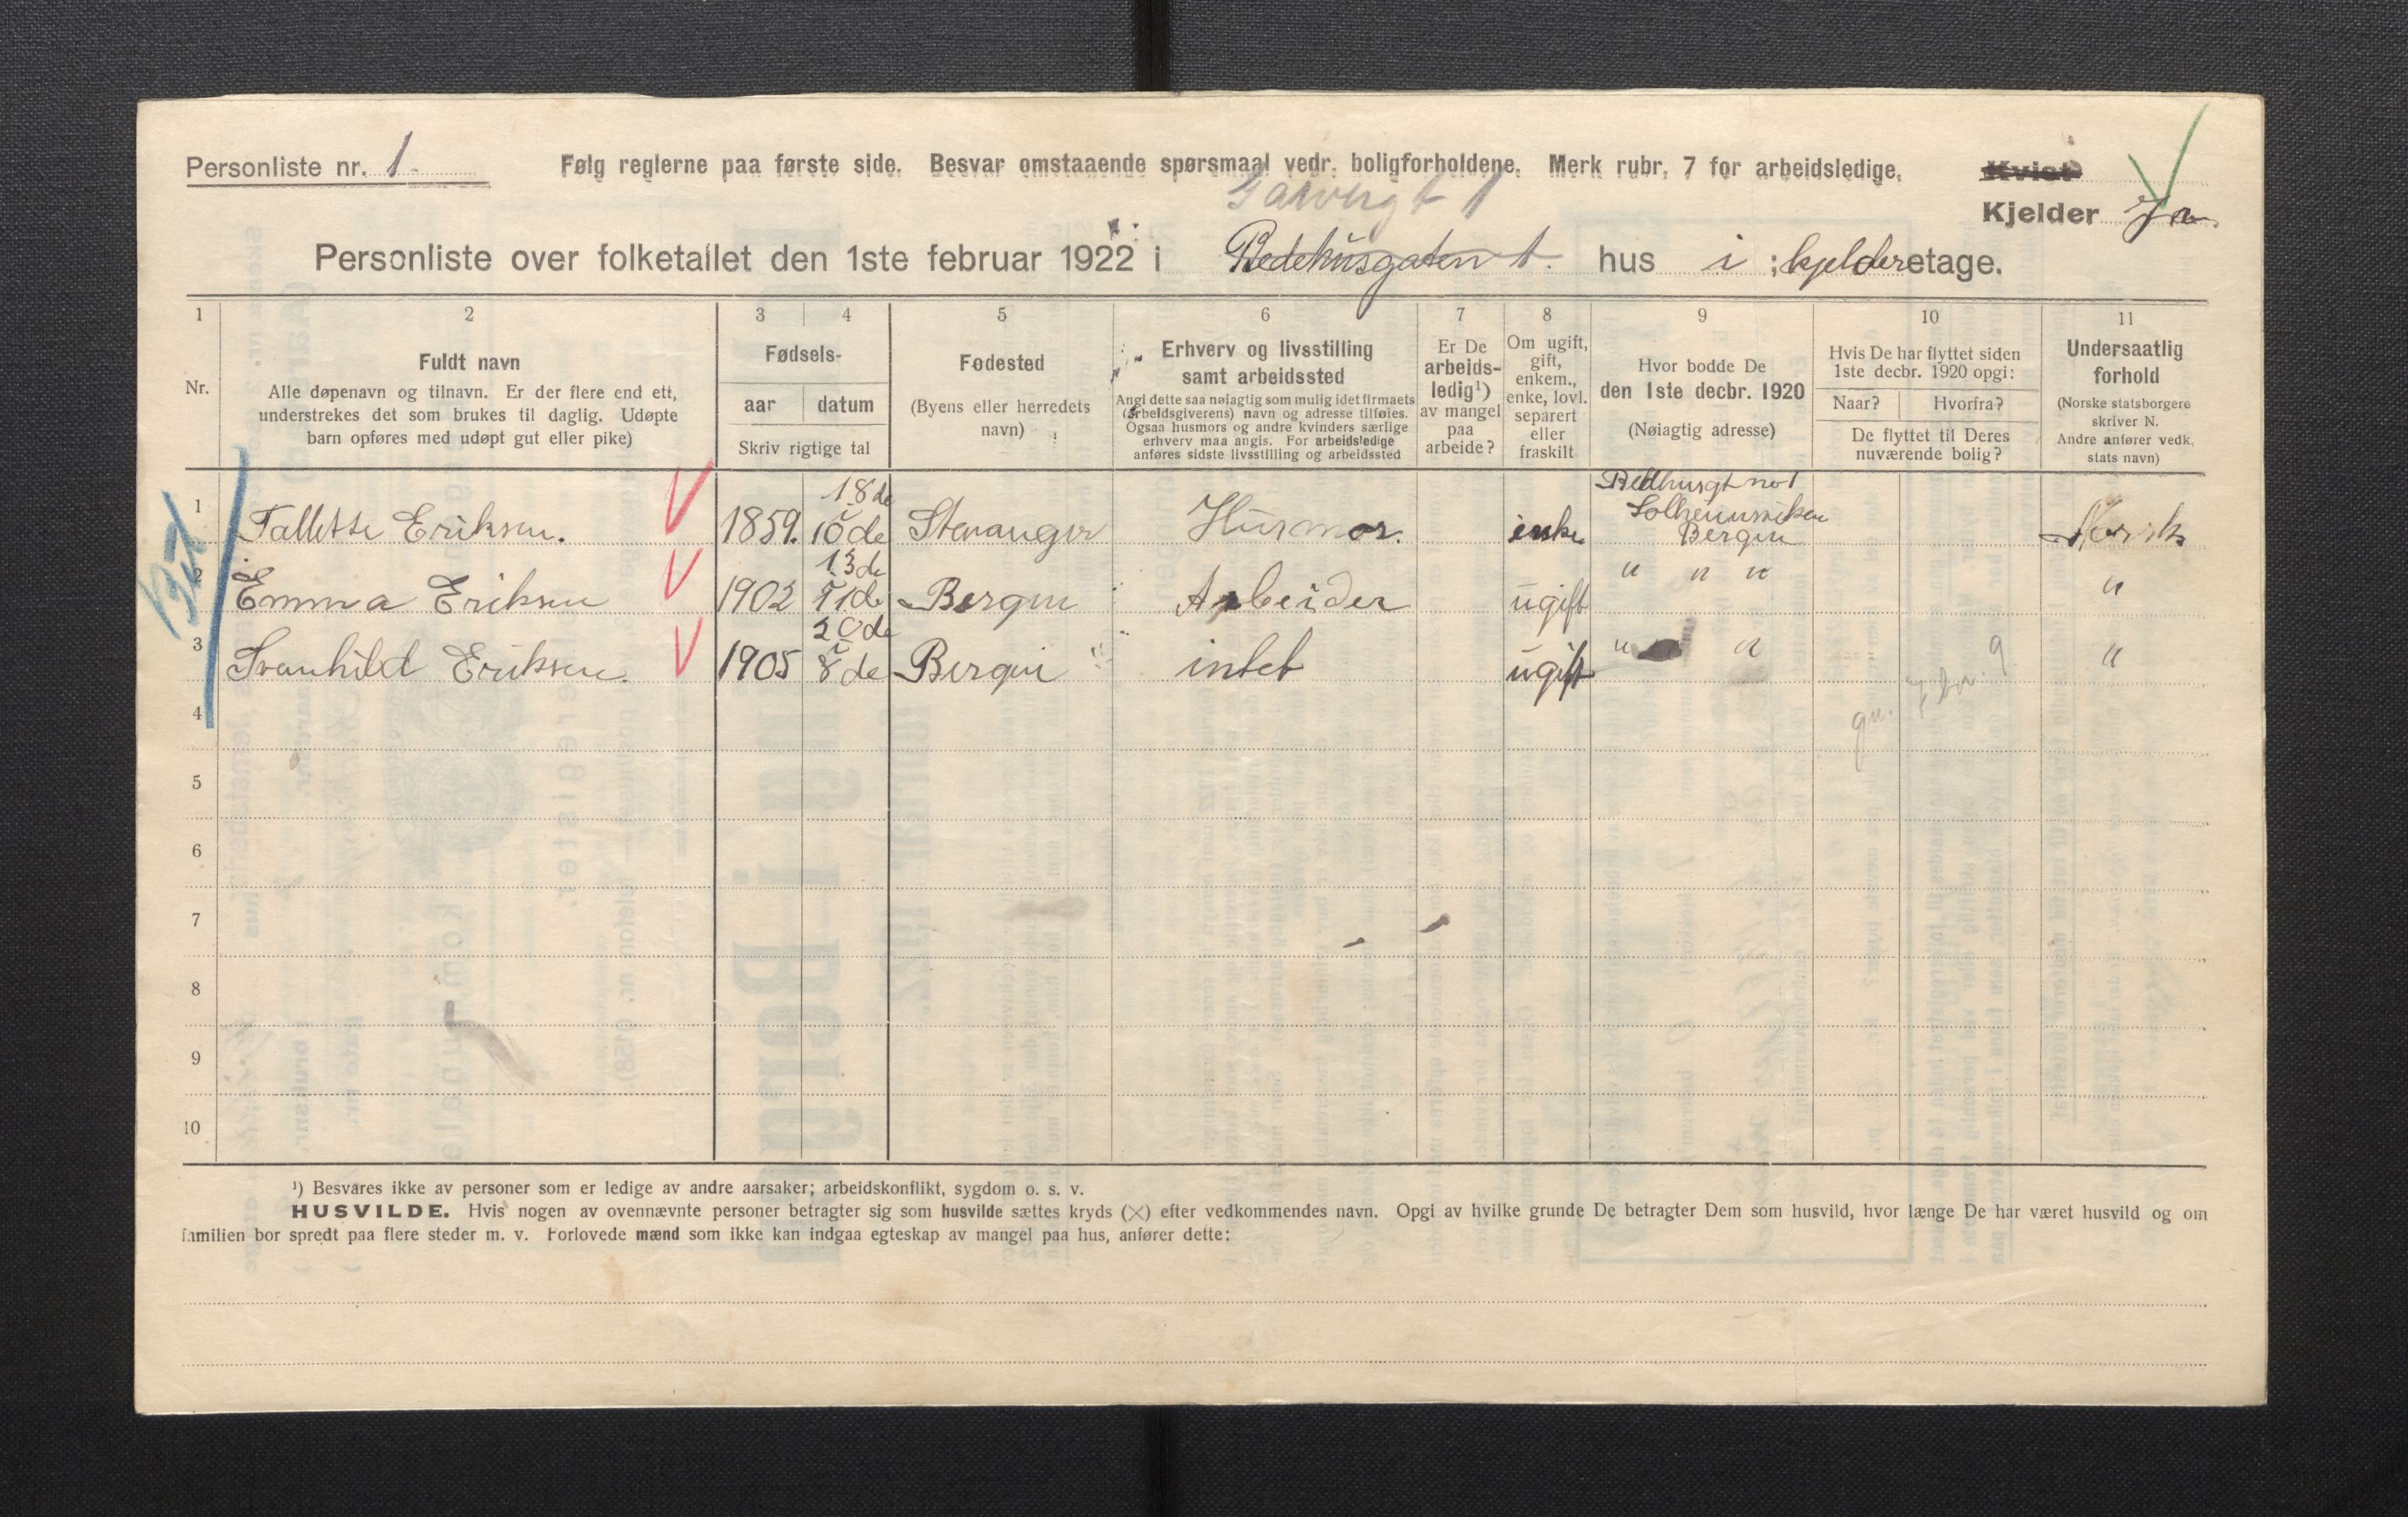 Personliste nr. 1. Følg reglerne paa første side. Besvar omstaaende spørsmaal vedr. boligforholdene. Merk rubr. 7 for arbeidsledige. Kvist
Kjelder Ja
Personliste over folketallet den 1ste februar 1922 i Bedehusgaten 1. hus i ; kjelderetage.
1 2 3 4 5 6 7 8 9 10 11
Nr.
Fuldt navn
Alle døpenavn og tilnavn. Er der flere end ett,
understrekes det som brukes til daglig. Udøpte
barn opføres med udøpt gut eller pike)
Fødsels-
aar datum
Skriv rigtige tal
Fødested
(Byens eller herredets
navn)
Erhverv og livsstilling
samt arbeidssted
Angi dette saa nøiagtig som mulig idet firmaets
(arbeidsgiverens) navn og adresse tilføies.
Ogsaa husmors og andre kvinders særlige
erhverv maa angis. For arbeidsledige
anføres sidste livsstilling og arbeidssted
Er De
arbeids-
ledig¹)
av mangel
paa
arbeide?
Om ugift,
gift,
enkem.,
enke, lovl.
separert
eller
fraskilt
Hvor bodde De
den 1ste decbr. 1920
(Nøiagtig adresse)
Hvis De har flyttet siden
1ste decbr. 1920 opgi:
Naar? Hvorfra?
De flyttet til Deres
nuværende bolig?
Undersaatlig
forhold
(Norske statsborgere
skriver N.
Andre anfører vedk.
stats navn)
1 Tallette Eriksen. 1859. 18de 10de Stavanger Husmor. enke Bedhusgt no 1
Solheimsviken
Bergen Norsk
2 Emma Eriksen 1902 13de 11de Bergen Arbeider ugift " " " "
3 Svanhild Eriksen. 1905 20de 8de Bergen intet ugift " " "
4
5
6
7
8
9
10
¹) Besvares ikke av personer som er ledige av andre aarsaker; arbeidskonflikt, sygdom o. s. v.
HUSVILDE. Hvis nogen av ovennævnte personer betragter sig som husvilde sættes kryds (×) efter vedkommendes navn. Opgi av hvilke grunde De betragter Dem som husvild, hvor længe De har været husvild og om
familien bor spredt paa flere steder m. v. Forlovede mænd som ikke kan indgaa egteskap av mangel paa hus, anfører dette: